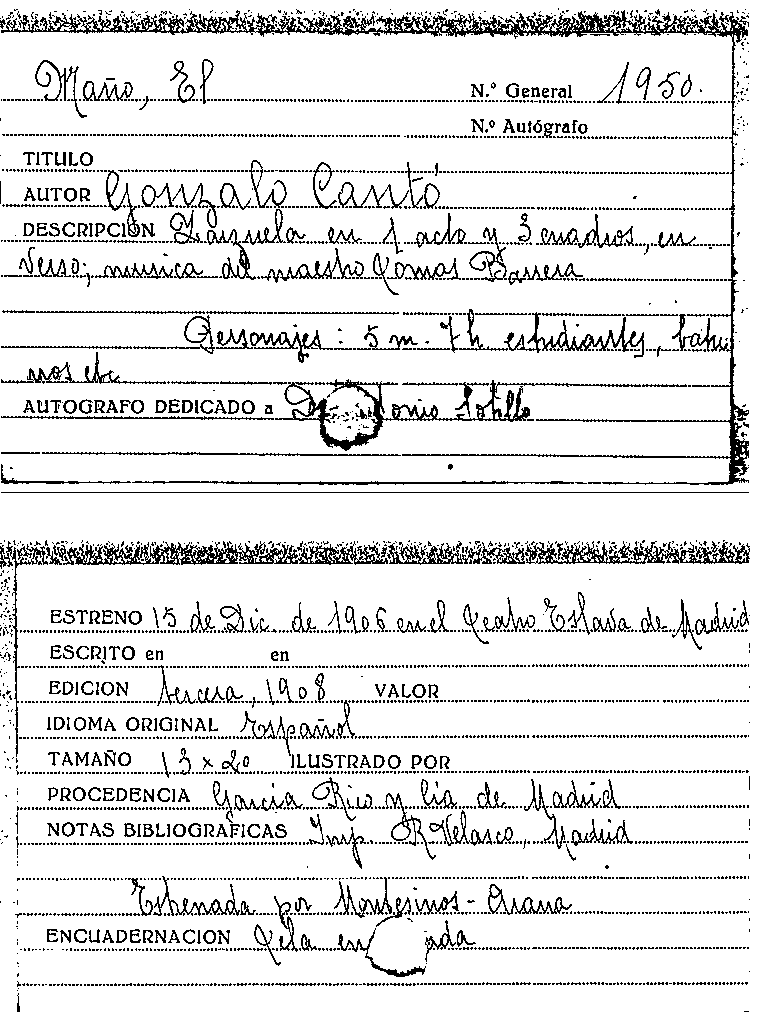 Maño, El N.º General 1950.
N.º Autógrafo
TITULO
AUTOR Gonzalo Cantó
DESCRIPCIÓN Zarzuela en 1 acto y 3 cuadros, en
verso; musica del maestro Tomas Barrera
Personajes: 5 m. 7 h estudiantes, batu
rros etc
AUTOGRAFO DEDICADO a D. tonio Sotillo
ESTRENO 15 de Dic. de 1906 en el Teatro Eslava de Madrid
ESCRITO en en
EDICION tercera, 1908 VALOR
IDIOMA ORIGINAL Español
TAMAÑO 13 x 20 ILUSTRADO POR
PROCEDENCIA Garcia Rico y Cia de Madrid
NOTAS BIBLIOGRAFICAS Imp. R Velasco, Madrid
Estrenada por Montesinos - Arana
ENCUADERNACION Tela en ada